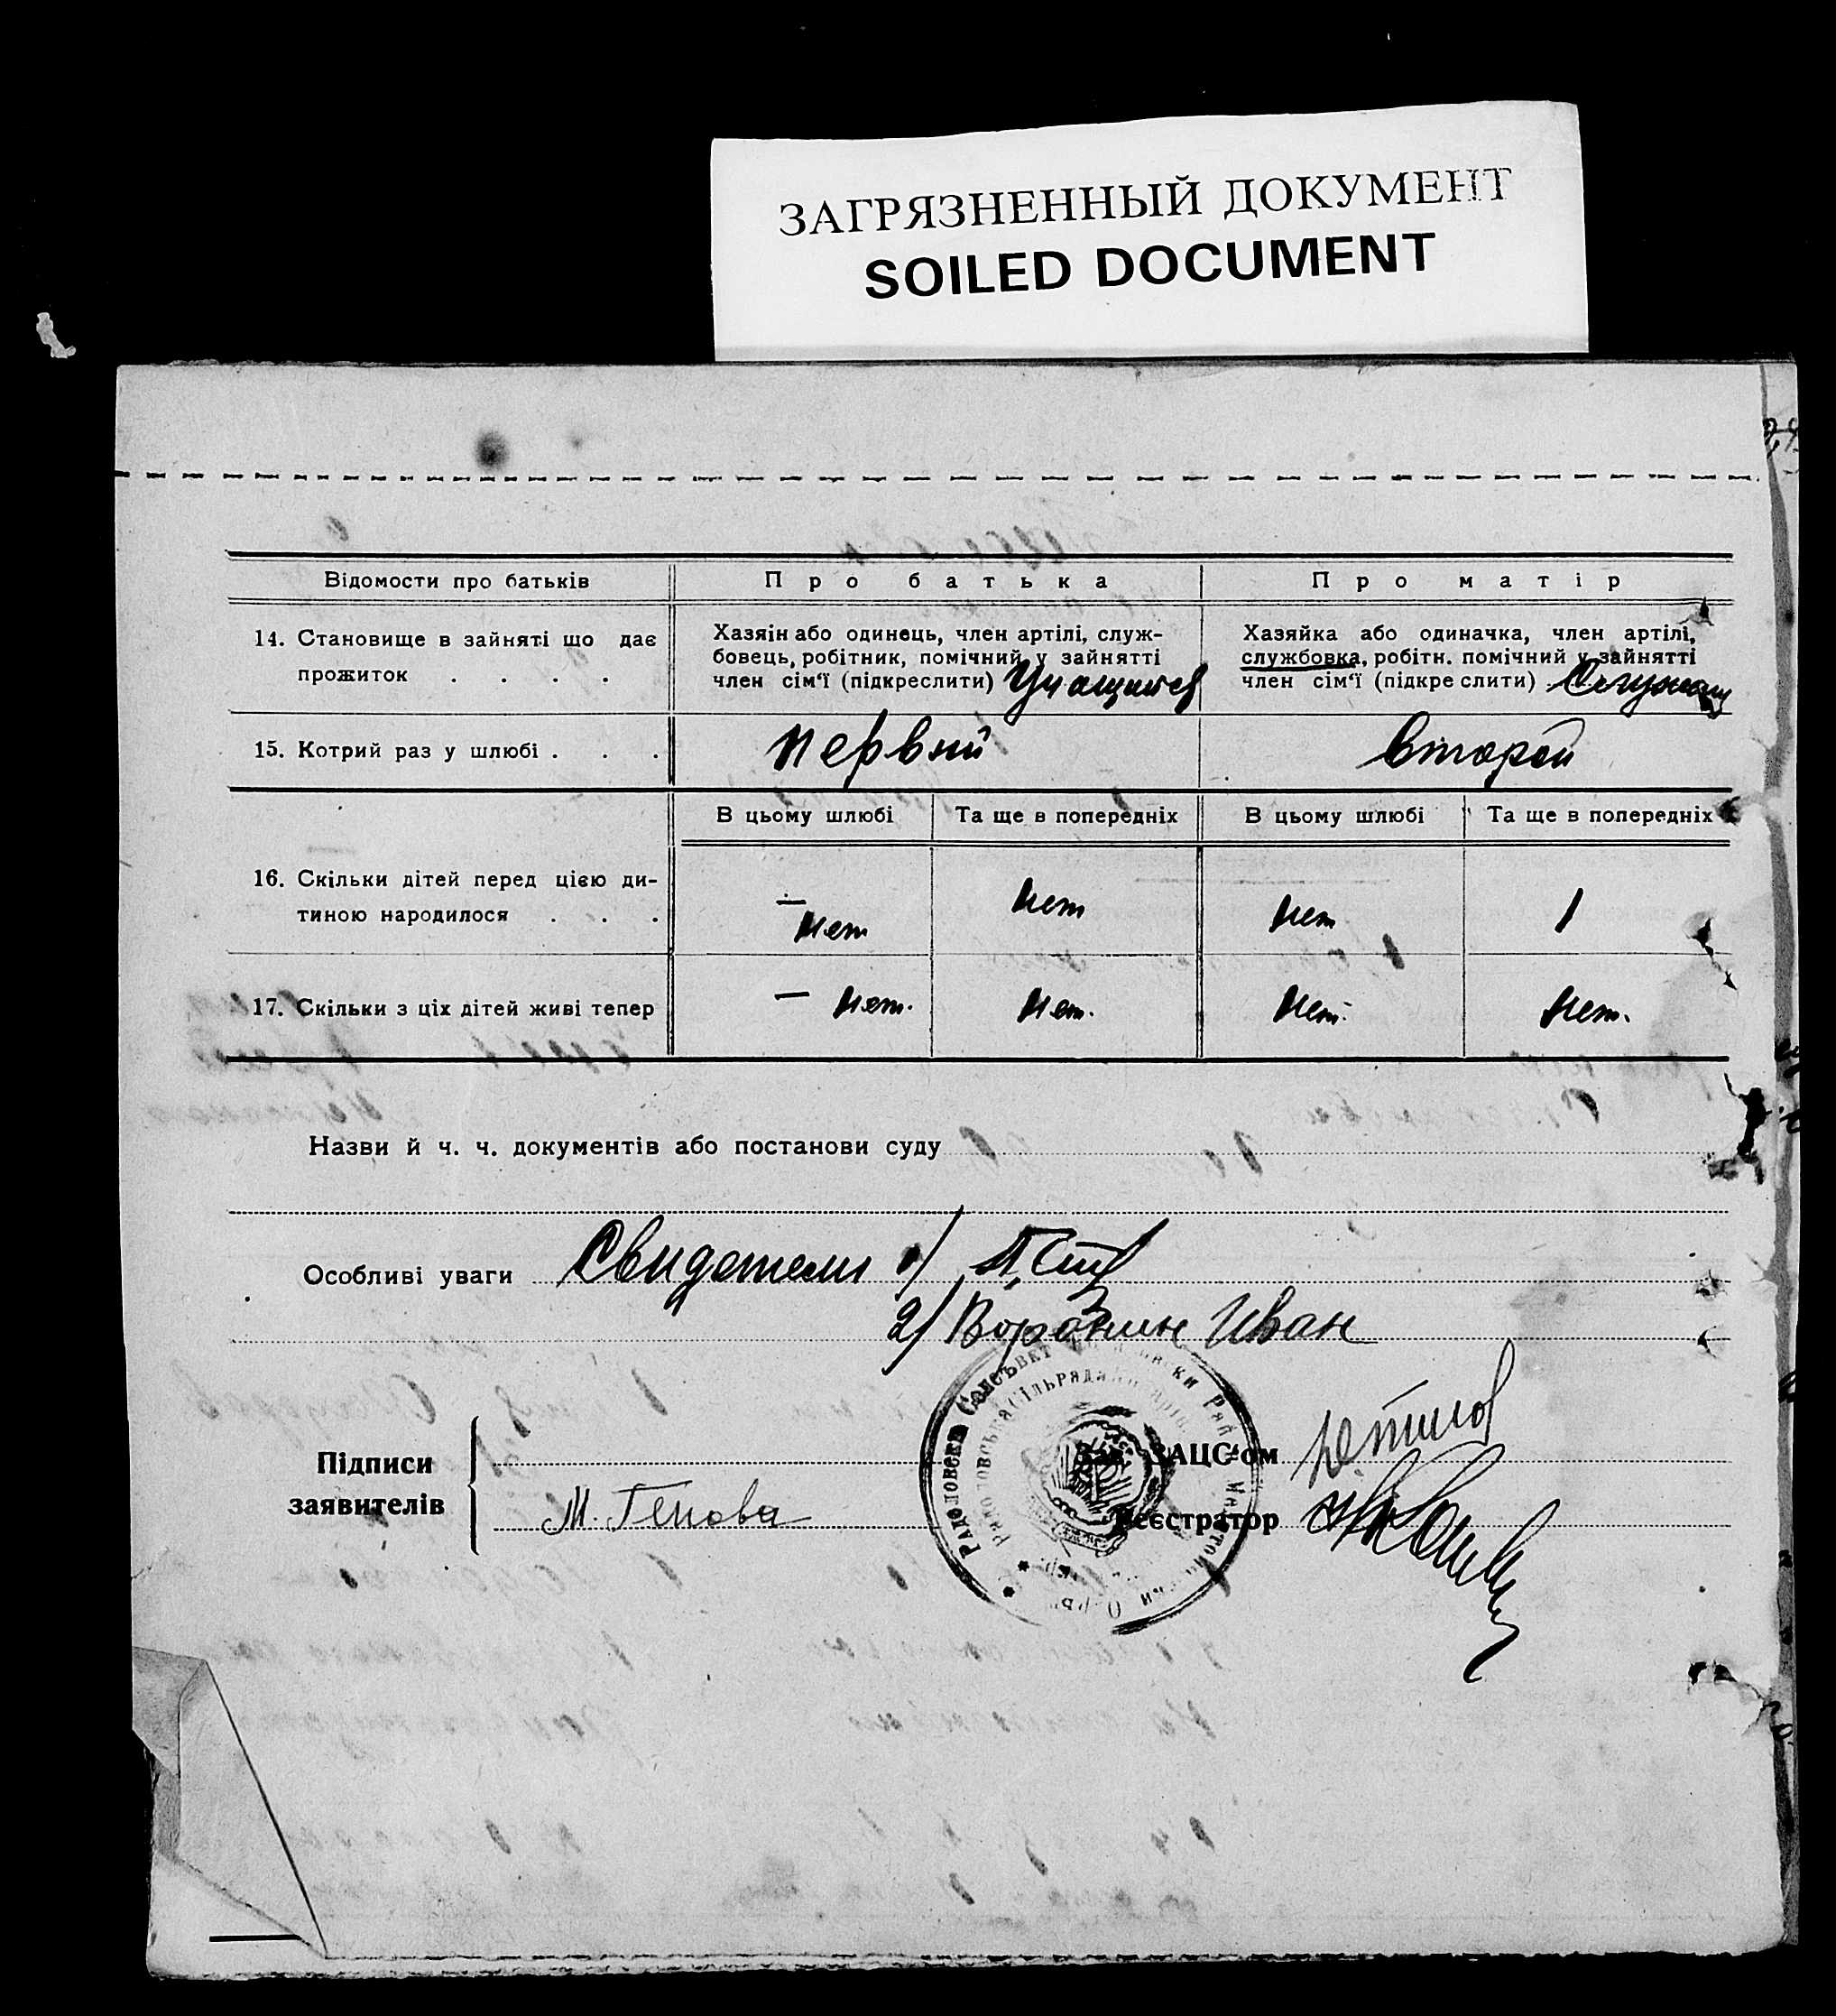 ЗАГРЯЗНЕННЫЙ ДОКУМЕНТ
SOILED DOCUMENT
Відомости про батьків
Про батька
Про матір
14. Становище в зайняті що дає
прожиток . . . .
Хазяїн або одинець, член артілі, служ-
бовець, робітник, помічний у зайнятті
член сім'ї (підкреслити) Учащийся
Хазяйка або одиначка, член артілі,
службовка, робітн. помічний у зайнятті
член сім'ї (підкреслити)
15. Котрий раз у шлюбі . . .
первый
второй
В цьому шлюбі
Та ще в попередніх
В цьому шлюбі
Та ще в попередніх
16. Скільки дітей перед цією ди-
тиною народилося . . .
— нет
нет
нет
1
17. Скільки з ціх дітей живі тепер
— нет.
нет.
нет.
нет.
Назви й ч. ч. документів або постанови суду
Особливі уваги Свидетели 1/
2/ Воронин Иван
Підписи
заявителів
М. Генова
Зав. ЗАЦС'ом
Реєстратор